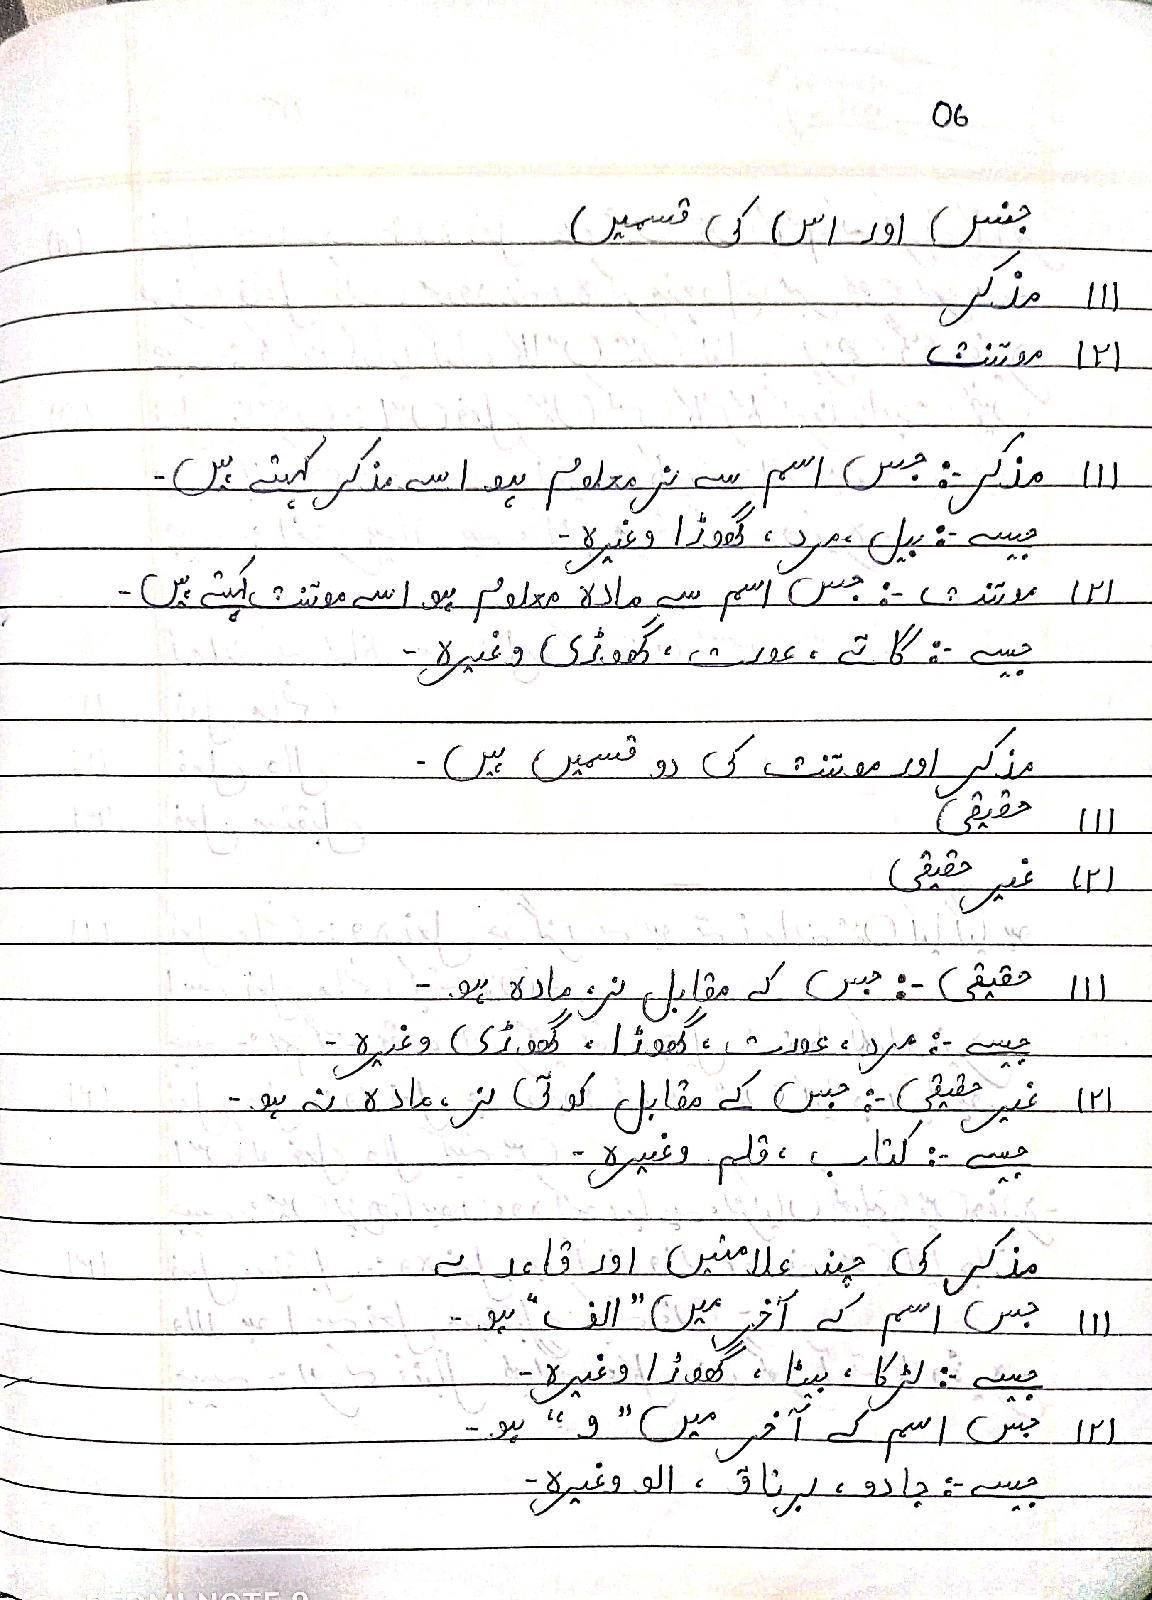 06
جنس اور اس کی قسمیں
(۱) مذکر
(۲) موئنث
(۱) مذکر -: جس اسم سے نر معلوم ہو اسے مذکر کہتے ہیں -
جیسے -: بیل ، مرد ، گھوڑا وغیرہ -
(۲) موئنث -: جس اسم سے مادہ معلوم ہو اسے موئنث کہتے ہیں -
جیسے -: گائے ، عورت ، گھوڑی وغیرہ -
مذکر اور موئنث کی دو قسمیں ہیں -
(۱) حقیقی
(۲) غیر حقیقی
(۱) حقیقی -: جس کے مقابل نر ، مادہ ہو -
جیسے -: مرد ، عورت ، گھوڑا ، گھوڑی وغیرہ -
(۲) غیر حقیقی -: جس کے مقابل کوئی نر ، مادہ نہ ہو -
جیسے -: کتاب ، قلم وغیرہ -
مذکر کی چند علامتیں اور قاعدے
(۱) جس اسم کے آخر میں "الف" ہو -
جیسے -: لڑکا ، بیٹا ، گھوڑا وغیرہ -
(۲) جس اسم کے آخر میں "و" ہو -
جیسے -: جادو ، الو وغیرہ -
REDMI NOTE 8